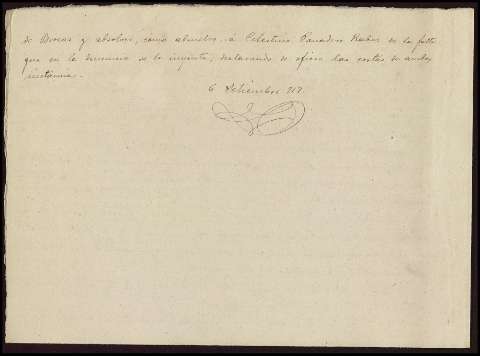 de Morcas y absolver, como absuelvo á Celestino Panadero Rubio de la falta
que en la denuncia se le imputa, declarando de oficio las costas de ambas
instancias.
6 Setiembre 917.